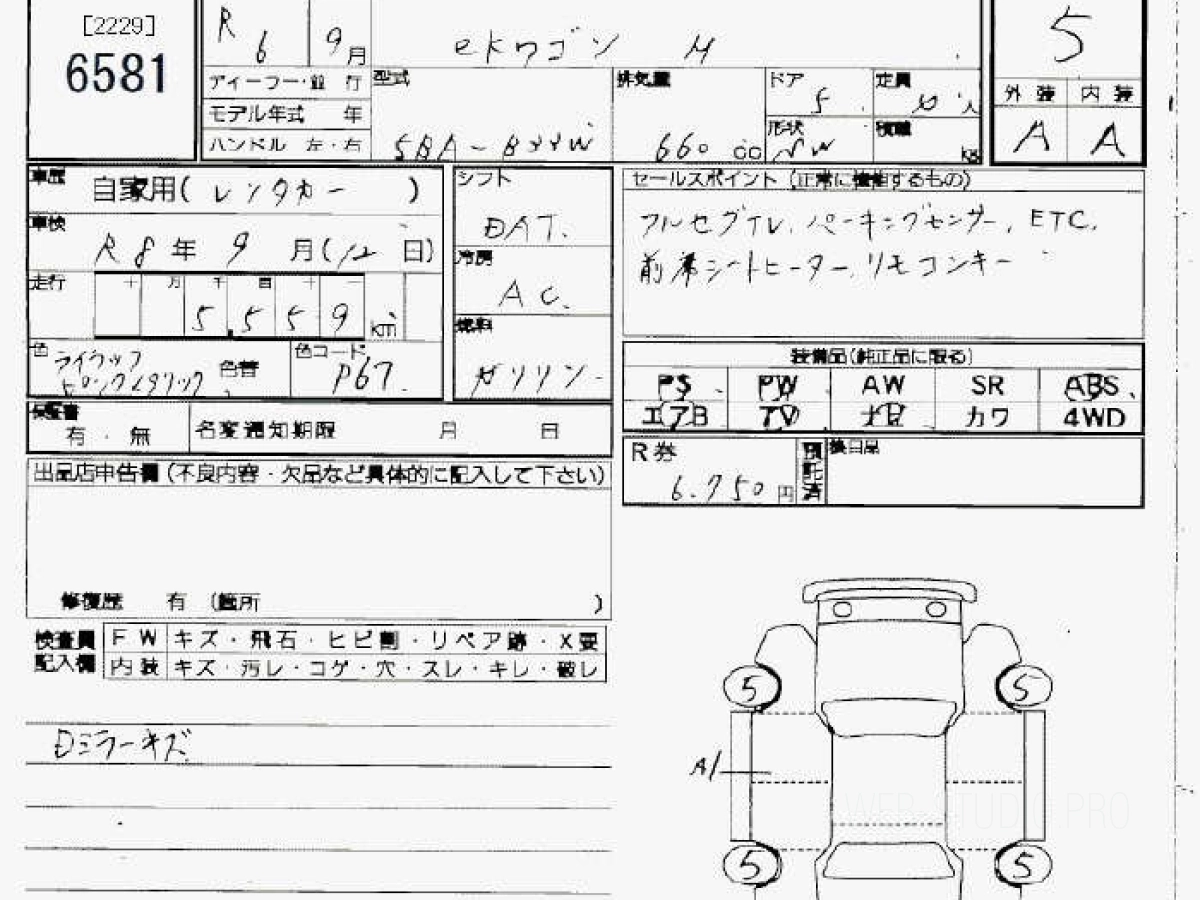 [2229]
6581
R 6 9月
ekワゴン M
5
外装 内装
A A
ディーラー・並行
モデル年式 年
ハンドル 左・右
型式
5BA-B33W
排気量
660 cc
ドア
5
定員
人
形状
積載
kg
車歴
自家用(レンタカー)
車検
R8年 9月(12日)
走行
十 万 千 百 十 一
5,559 km
色
ライラック
ピンクメタリック
色替
色コード
P67
シフト
DAT.
冷房
AC.
燃料
ガソリン
セールスポイント(正常に機能するもの)
フルセグTV, パーキングセンサー, ETC,
前席シートヒーター, リモコンキー
装備品(純正品に限る)
PS PW AW SR ABS
エアB TV ナビ カワ 4WD
保証書
有・無
名変通知期限 月 日
R券
6,750円
預託済
後日品
出品店申告欄(不良内容・欠品など具体的に記入して下さい)
修復歴 有 (箇所 )
検査員記入欄
FW キズ・飛石・ヒビ割・リペア跡・X要
内装 キズ・汚レ・コゲ・穴・スレ・キレ・破レ
Dミラーキズ
5 5
A1
5 5
WEB-STUDIO.PRO